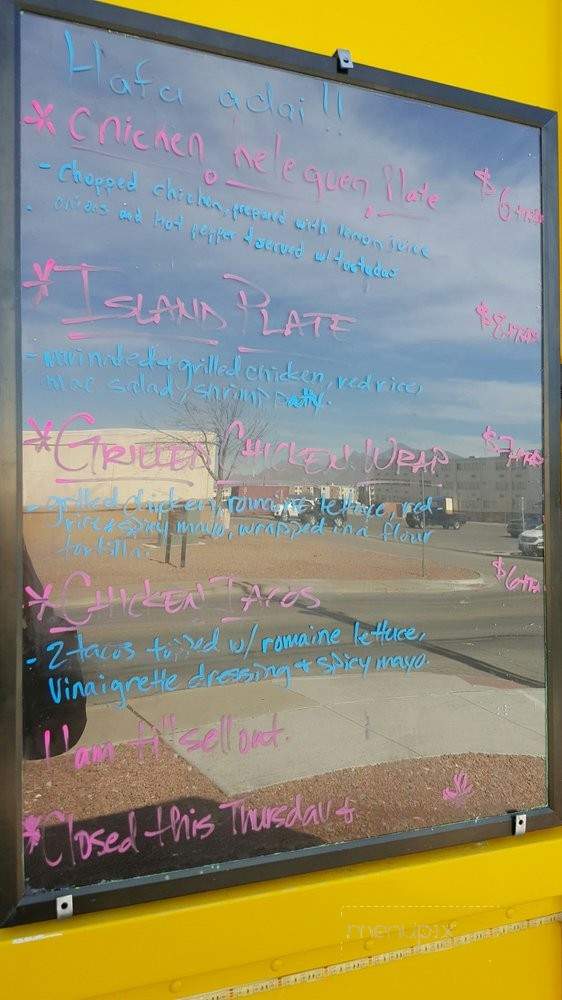 Hafa adai!!
* Chicken, Kelaguen Plate $6+tax
- chopped chicken, prepared with lemon juice
- onions and hot pepper served w/
* ISLAND PLATE $8+tax
- marinated + grilled chicken, red rice,
mac salad, shrimp patty.
* GRILLED CHICKEN WRAP $7+tax
- grilled chicken, romaine lettuce, red
rice + spicy mayo, wrapped in a flour
tortilla.
* CHICKEN TACOS $6+tax
- 2 tacos topped w/ romaine lettuce,
Vinaigrette dressing + spicy mayo.
11am til' sell out.
* Closed this Thursday +
menupix